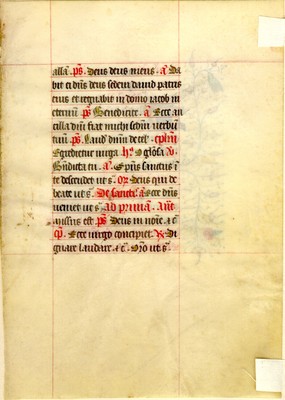 alla. ps. Deus deus meus. a Da
bit ei dn̄s deus sedem dauid patris
eius et regnabit in domo iacob in
eternū ps Benedicite. a Ecce an
cilla dn̄i fiat michi scdm̄ uerbū
tuū. ps. Laud dnm̄ de cel. cplm̄
Egredietur uirga hꝰ O gl̄osa v.
Bn̄dicta tu. a. Sp̄us sanctus ī
te descendet ut s̄. or Deus qui de
beate ut s̄. De sanctꝭ. a Ecce dn̄s
ueniet ut s̄. Ad primā. Ant̄
missus est. ps Deus in noīe. ⁊ c̄
cp̄. Ecce uirgo concipiet. R Di
gnare laudare. ⁊ c̄. Or̄o ut s̄.